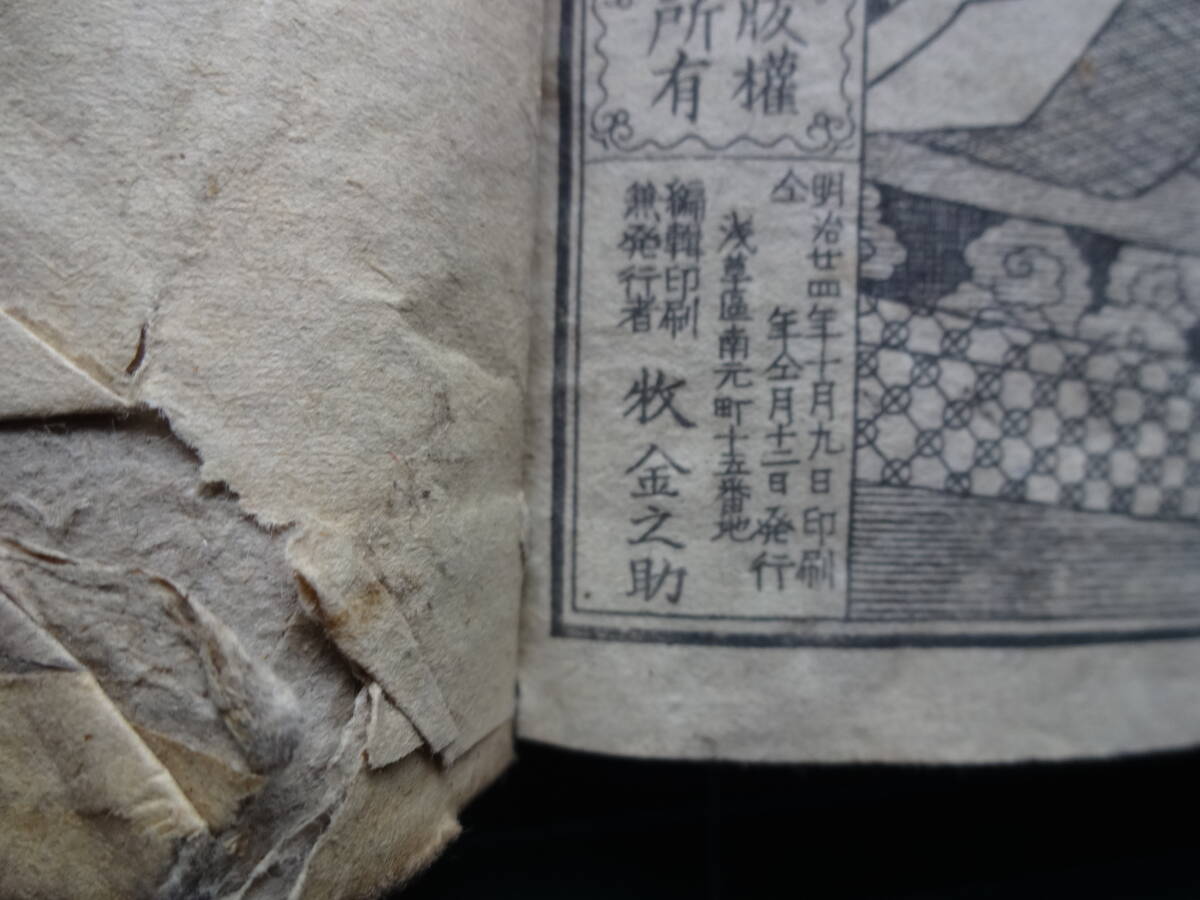 版權
所有
明治廿四年十月九日印刷
仝年仝月十二日発行
浅草區南元町十五番地
編輯印刷
無発行者
牧金之助